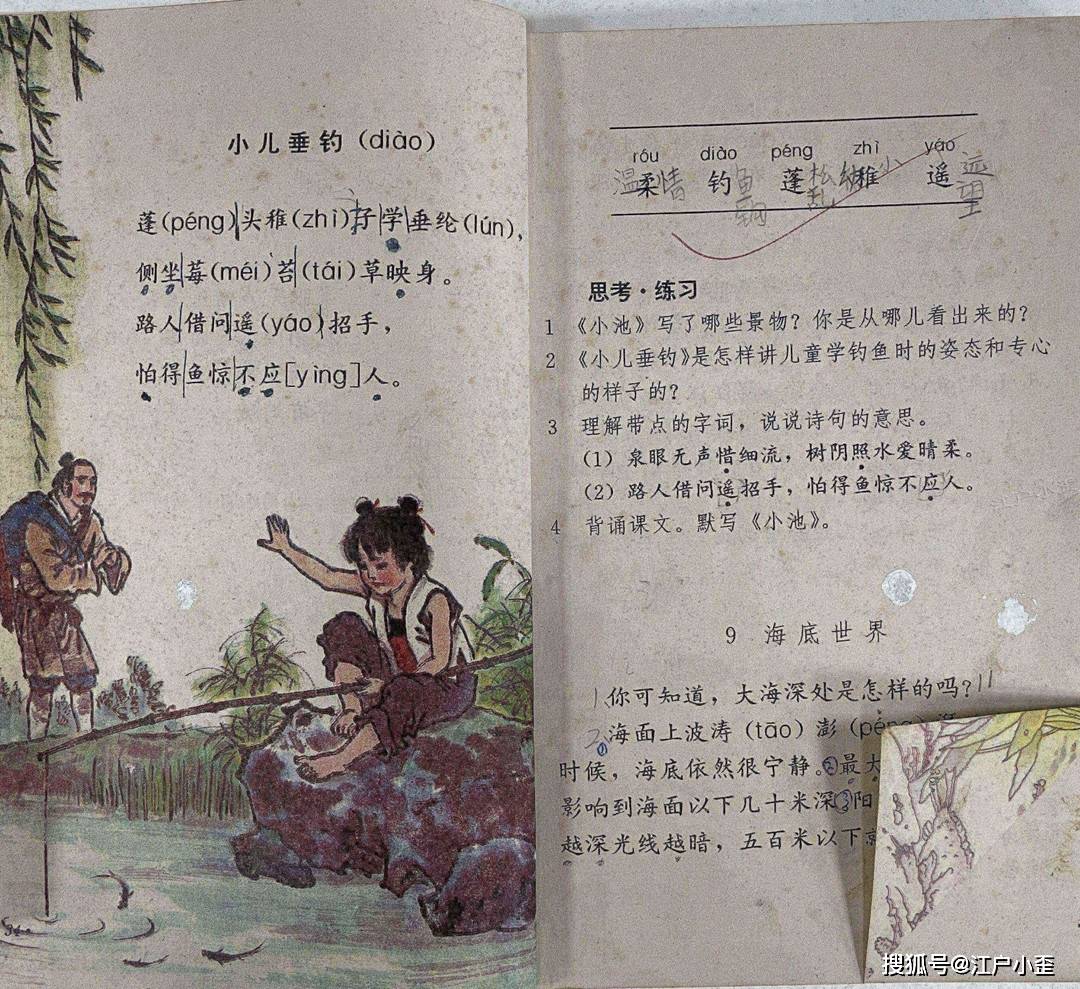 小儿垂钓(diào)
蓬(péng)头稚(zhì)子学垂纶(lún),
侧坐莓(méi)苔(tái)草映身。
路人借问遥(yáo)招手，
怕得鱼惊不应[yìng]人。
róu diào péng zhì yáo
温柔情 钓鱼 蓬松 幼稚 遥远
乱 望
思考·练习
1 《小池》写了哪些景物？你是从哪儿看出来的？
2 《小儿垂钓》是怎样讲儿童学钓鱼时的姿态和专心
的样子的？
3 理解带点的字词，说说诗句的意思。
(1) 泉眼无声惜细流，树阴照水爱晴柔。
(2) 路人借问遥招手，怕得鱼惊不应人。
4 背诵课文。默写《小池》。
9 海底世界
1 你可知道，大海深处是怎样的吗？
2 ①海面上波涛(tāo)澎(péng)
时候，海底依然很宁静。②最大
影响到海面以下几十米深③阳
越深光线越暗，五百米以下
搜狐号@江户小歪